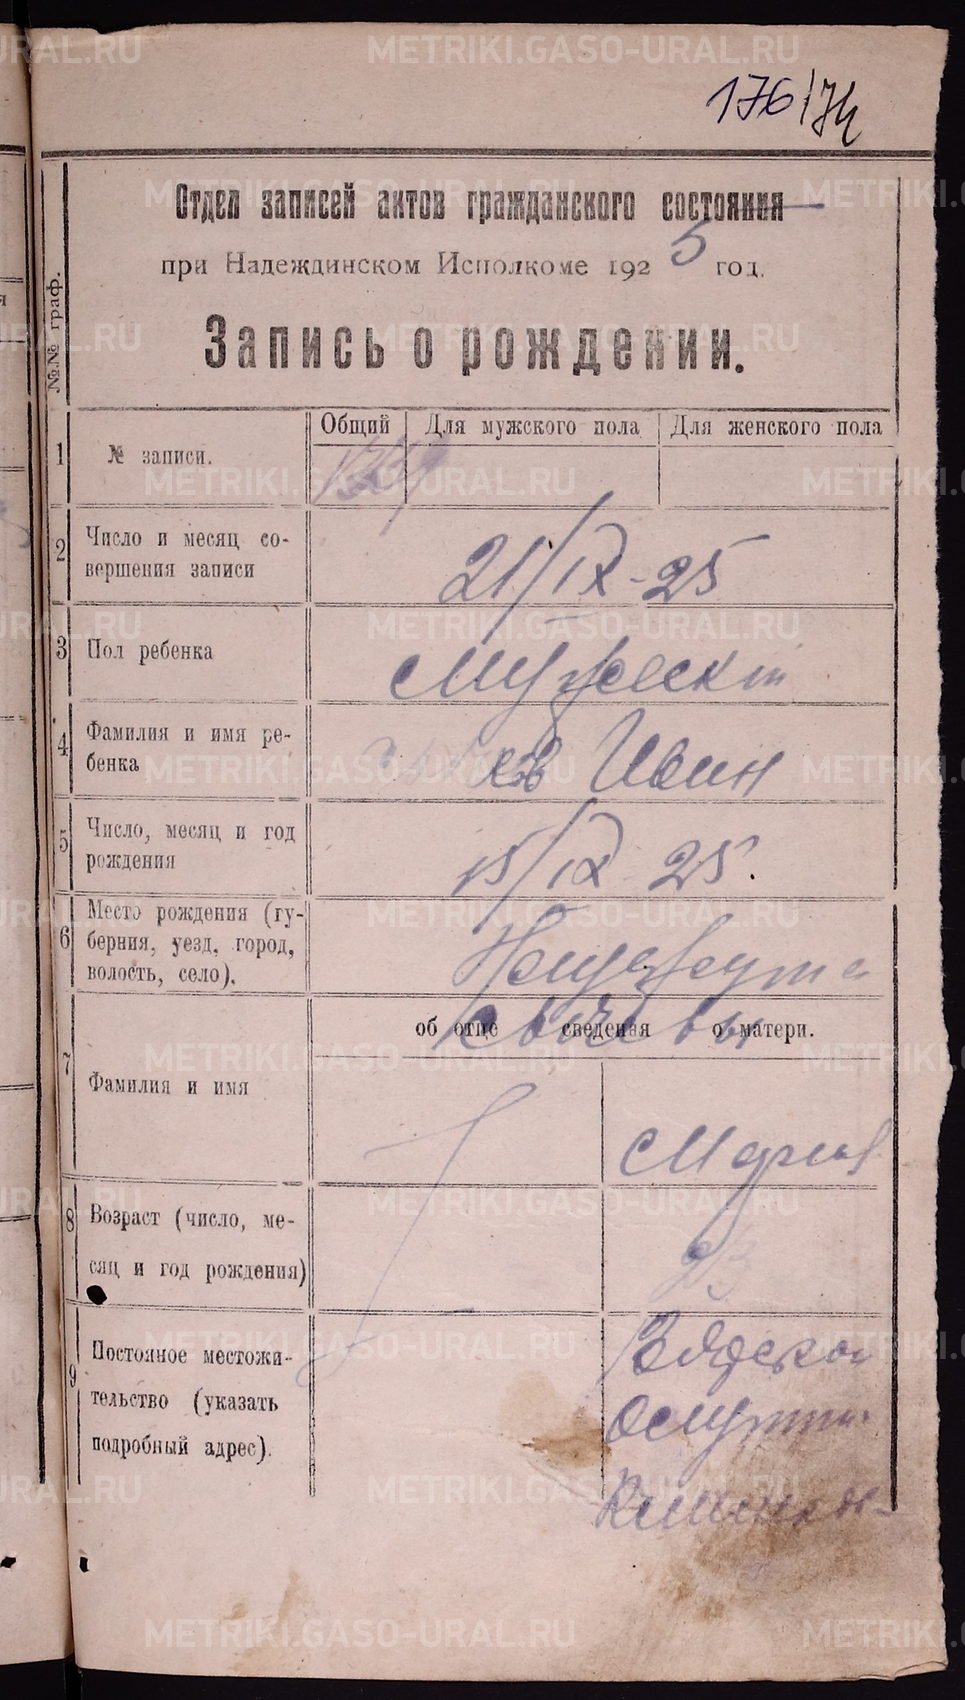 176/74
Отдел записей актов гражданского состояния
при Надеждинском Исполкоме 1925 год.
Запись о рождении.
№№ граф.
Общий Для мужского пола Для женского пола
1 № записи.
2 Число и месяц со-
вершения записи
21/IX-25
3 Пол ребенка
Мужеский
4 Фамилия и имя ре-
бенка
Иван
5 Число, месяц и год
рождения
15/IX 25.
6 Место рождения (гу-
берния, уезд, город,
волость, село).
об отце сведения о матери.
7
Фамилия и имя
Мария
8 Возраст (число, ме-
сяц и год рождения)
9 Постоянное местожи-
тельство (указать
подробный адрес).
METRIKI.GASO-URAL.RU